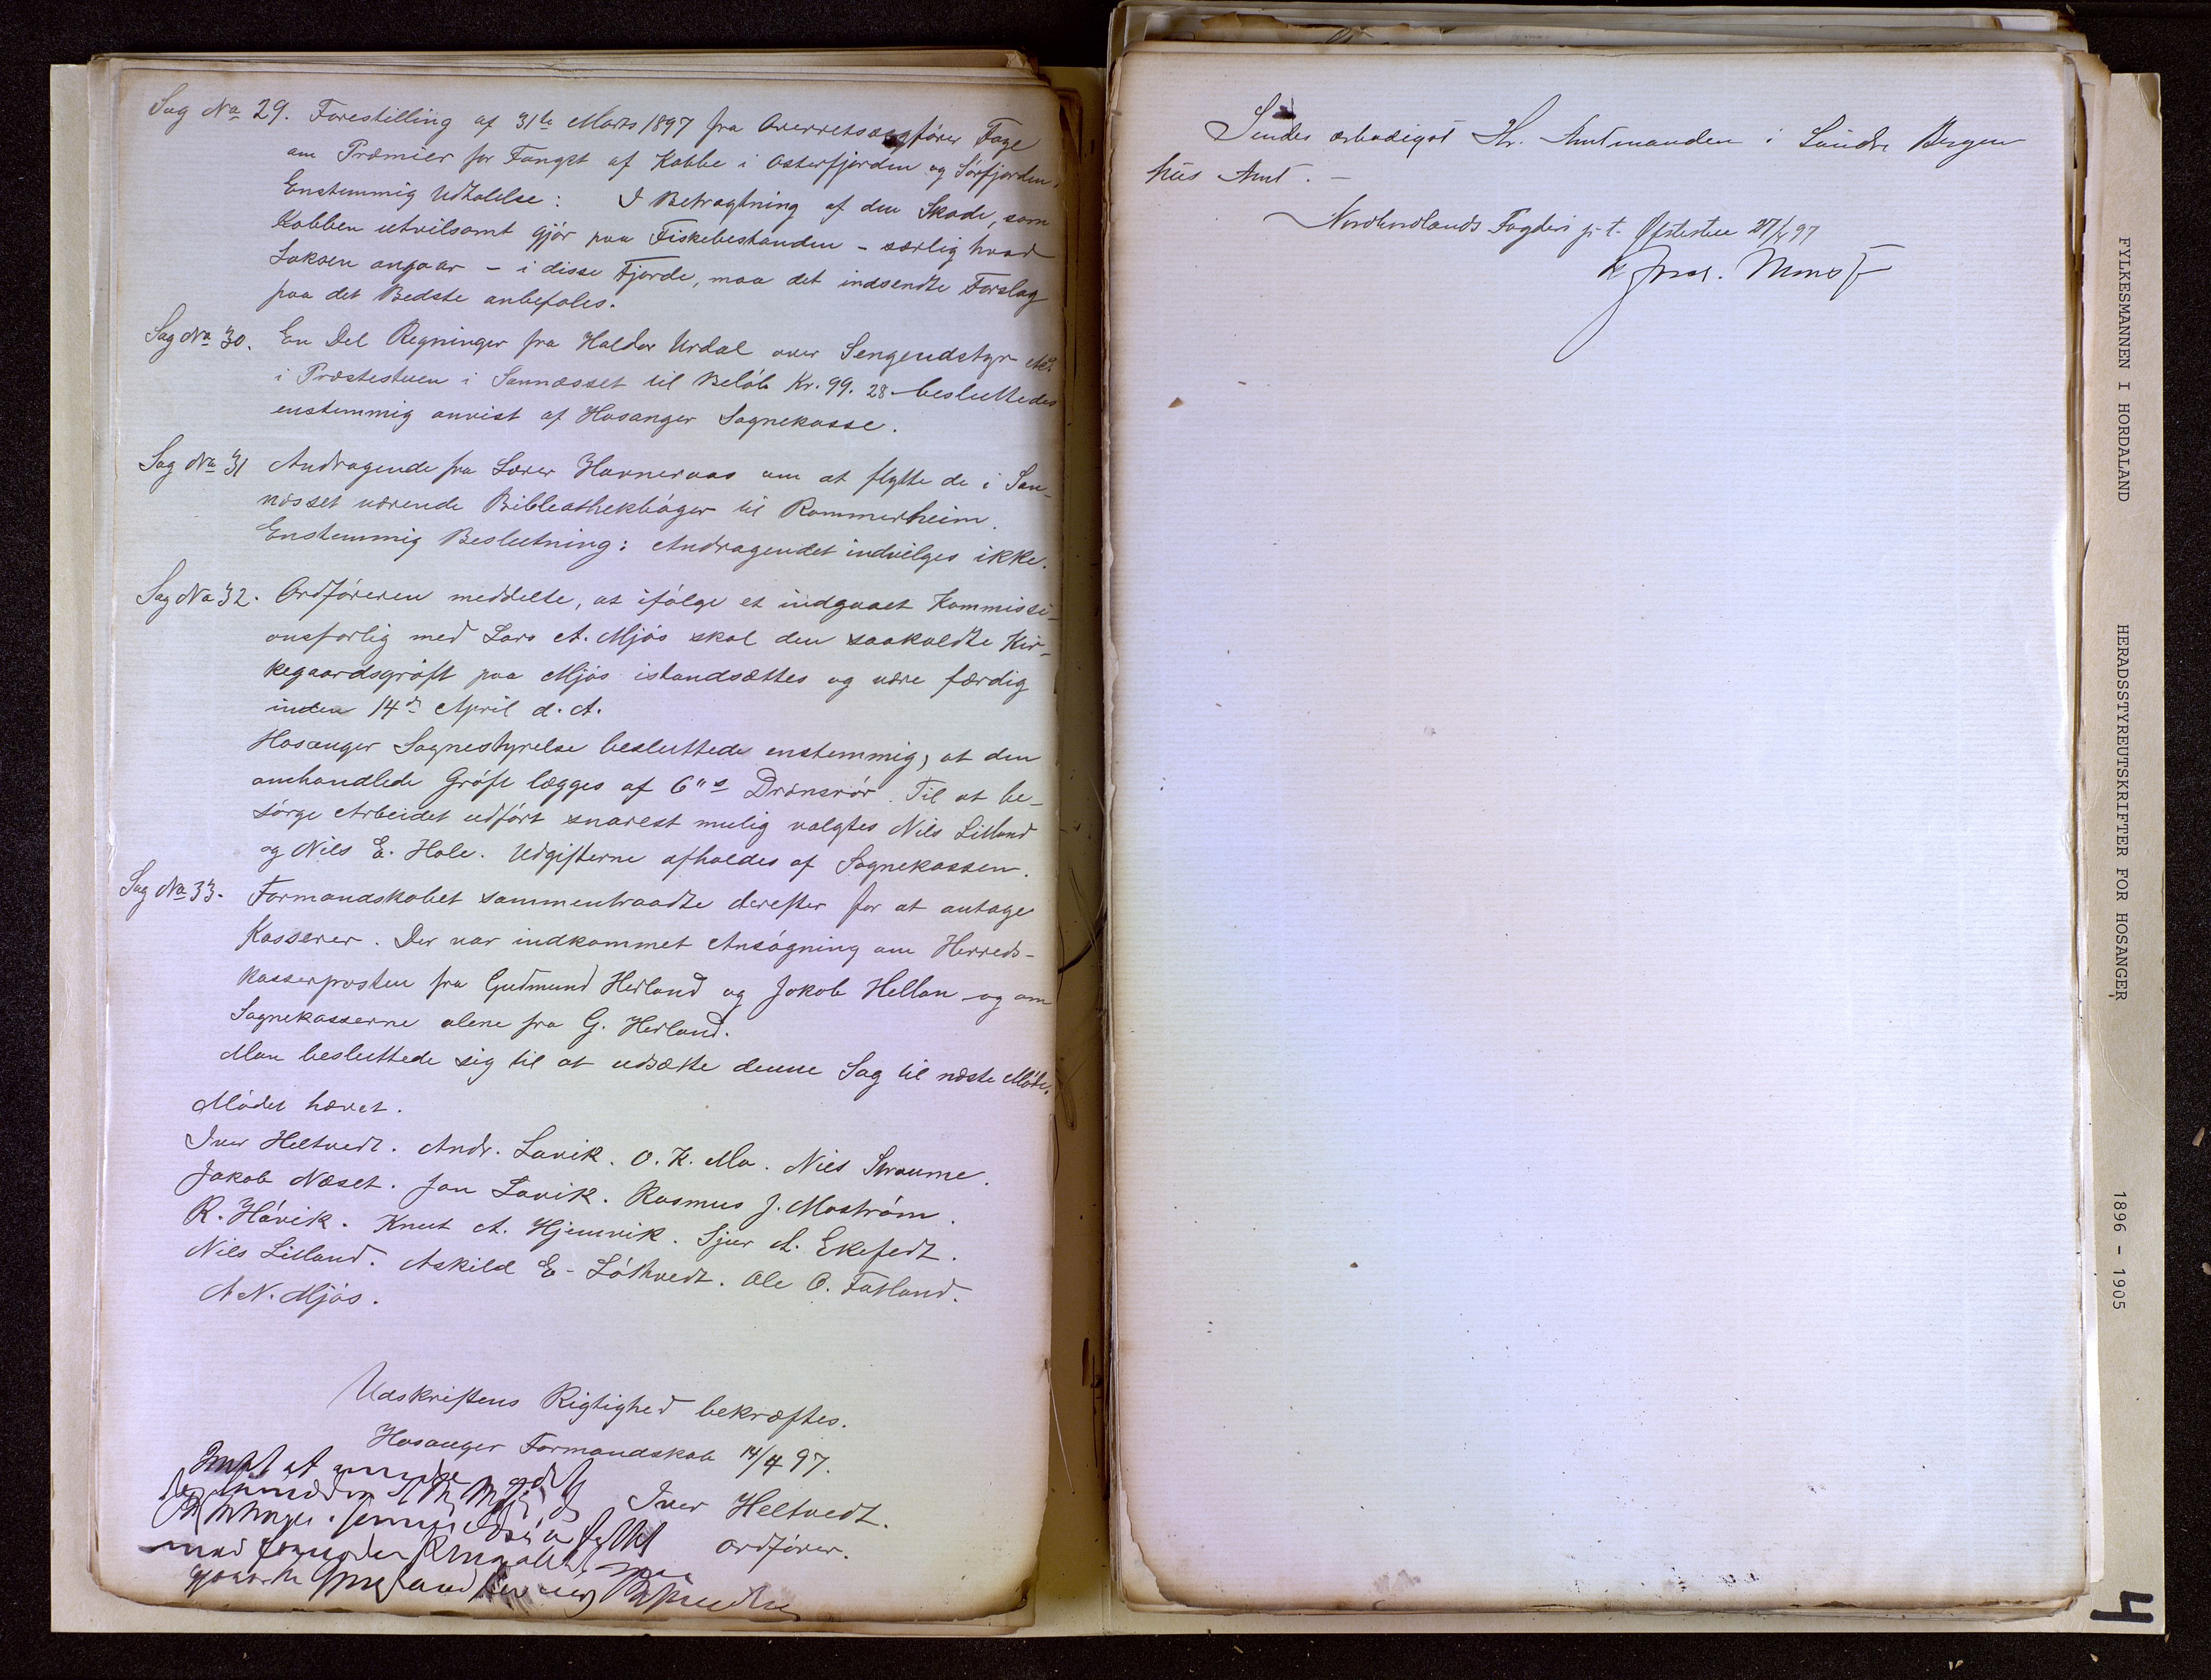 Sag No 29. Forestilling af 31te Marts 1897 fra Overretssagfører Fage
om Præmier for Fangst af Kobbe i Osterfjorden og Sørfjorden.
Enstemmig Udtalelse: I Betragtning af den Skade, som
Kobben utvilsomt gjør paa Fiskebestanden - særlig hvad
Laksen angaar - i disse Fjorde, maa det indsendte Forslag
paa det Bedste anbefales.
Sag No 30. En Del Regninger fra Haldor Urdal over Sengeudstyr etc.
i Præstestuen i Sannæsset til Beløb Kr. 99.28 besluttedes
enstemmig anvist af Hosanger Sognekasse.
Sag No 31 Andragende fra Lærer Havneraas om at flytte de i San-
næsset værende Bibliothekbøger til Rommerheim.
Enstemmig Beslutning: Andragendet indvilges ikke.
Sag No 32. Ordføreren meddelte, at ifølge et indgaaet Kommissi-
onsforlig med Lars A. Mjøs skal den saakaldte Kir-
kegaardsgrøft paa Mjøs istandsættes og være færdig
inden 14de April d. A.
Hosanger Sognestyrelse besluttede enstemmig, at den
omhandlede Grøft lægges af 6"s Drænsrør. Til at be-
sørge Arbeidet udført snarest mulig valgtes Nils Litland
og Nils E. Hole. Udgifterne afholdes af Sognekassen.
Sag No 33. Formandskabet sammentraadte derefter for at antage
Kasserer. Der var indkommet Ansøgning om Herreds-
kasserposten fra Gudmund Herland og Jakob Hellan og om
Sognekasserne alene fra G. Herland.
Man besluttede sig til at udsætte denne Sag til næste Møde.
Mødet hævet.
Iver Heltvedt. Andr. Lavik. O. K. Mo. Nils Straume.
Jakob Næset. Jon Lavik. Rasmus J. Mostrøm.
R. Håvik. Knut A. Hjemvik. Sjur A. Ekefedt.
Nils Litland. Askild E. Løthvedt. Ole O. Fatland.
A N. Mjøs.
Udskriftens Rigtighed bekræftes.
Hosanger Formandskab 14/4 97.
Iver Heltvedt.
ordfører.
Sendes ærbødigst Hr. Amtmanden i Søndre Bergen
hus Amt. -
Nordhordlands Fogderi p. t. 27/4 97
FYLKESMANNEN I HORDALAND HERADSSTYREUTSKRIFTER FOR HOSANGER 1896 - 1905
4